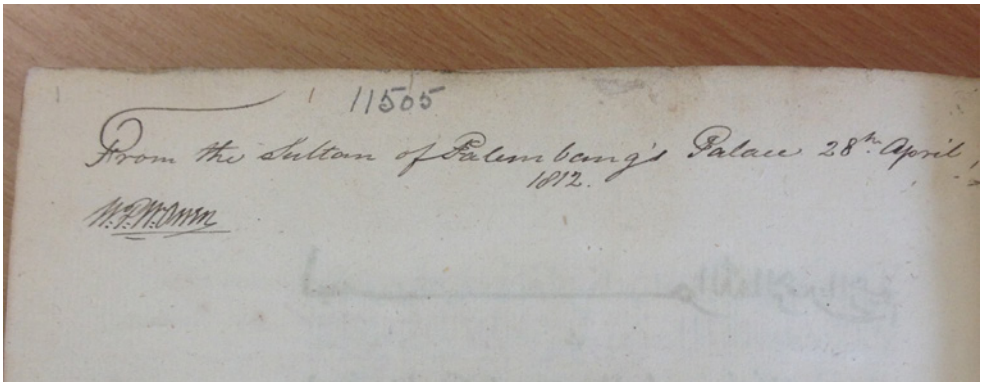 11505
From the Sultan of Palembang's Palace 28th. April,
1812.